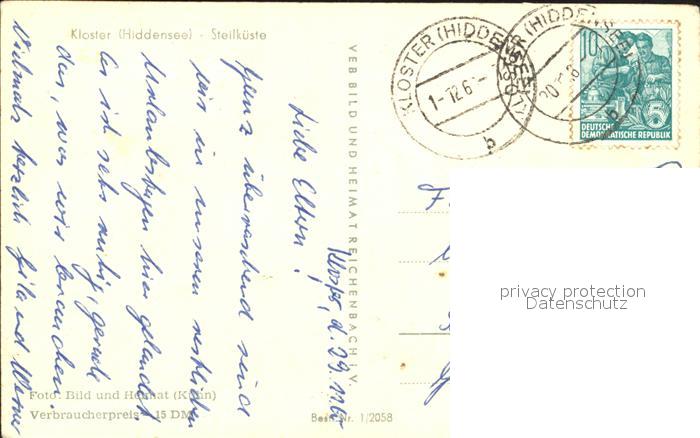 Kloster (Hiddensee) - Steilküste
KLOSTER (HIDDENSEE)
1-12.6
b
KLOSTER (HIDDENSEE)
b
10
5
DEUTSCHE
DEMOKRATISCHE REPUBLIK
VEB BILD UND HEIMAT REICHENBACH i. V.
Kloster, d. 29.
Liebe Eltern!
Ganz überraschend sind
wir in unseren restlichen
Urlaubstagen hier gelandet.
Es ist sehr ruhig, gerade
das, was wir brauchen.
Vielmals herzlich Gila und Werner
privacy protection
Datenschutz
Foto: Bild und Heimat (Kühn)
Verbraucherpreis -,15 DM
Best. Nr. 1/2058